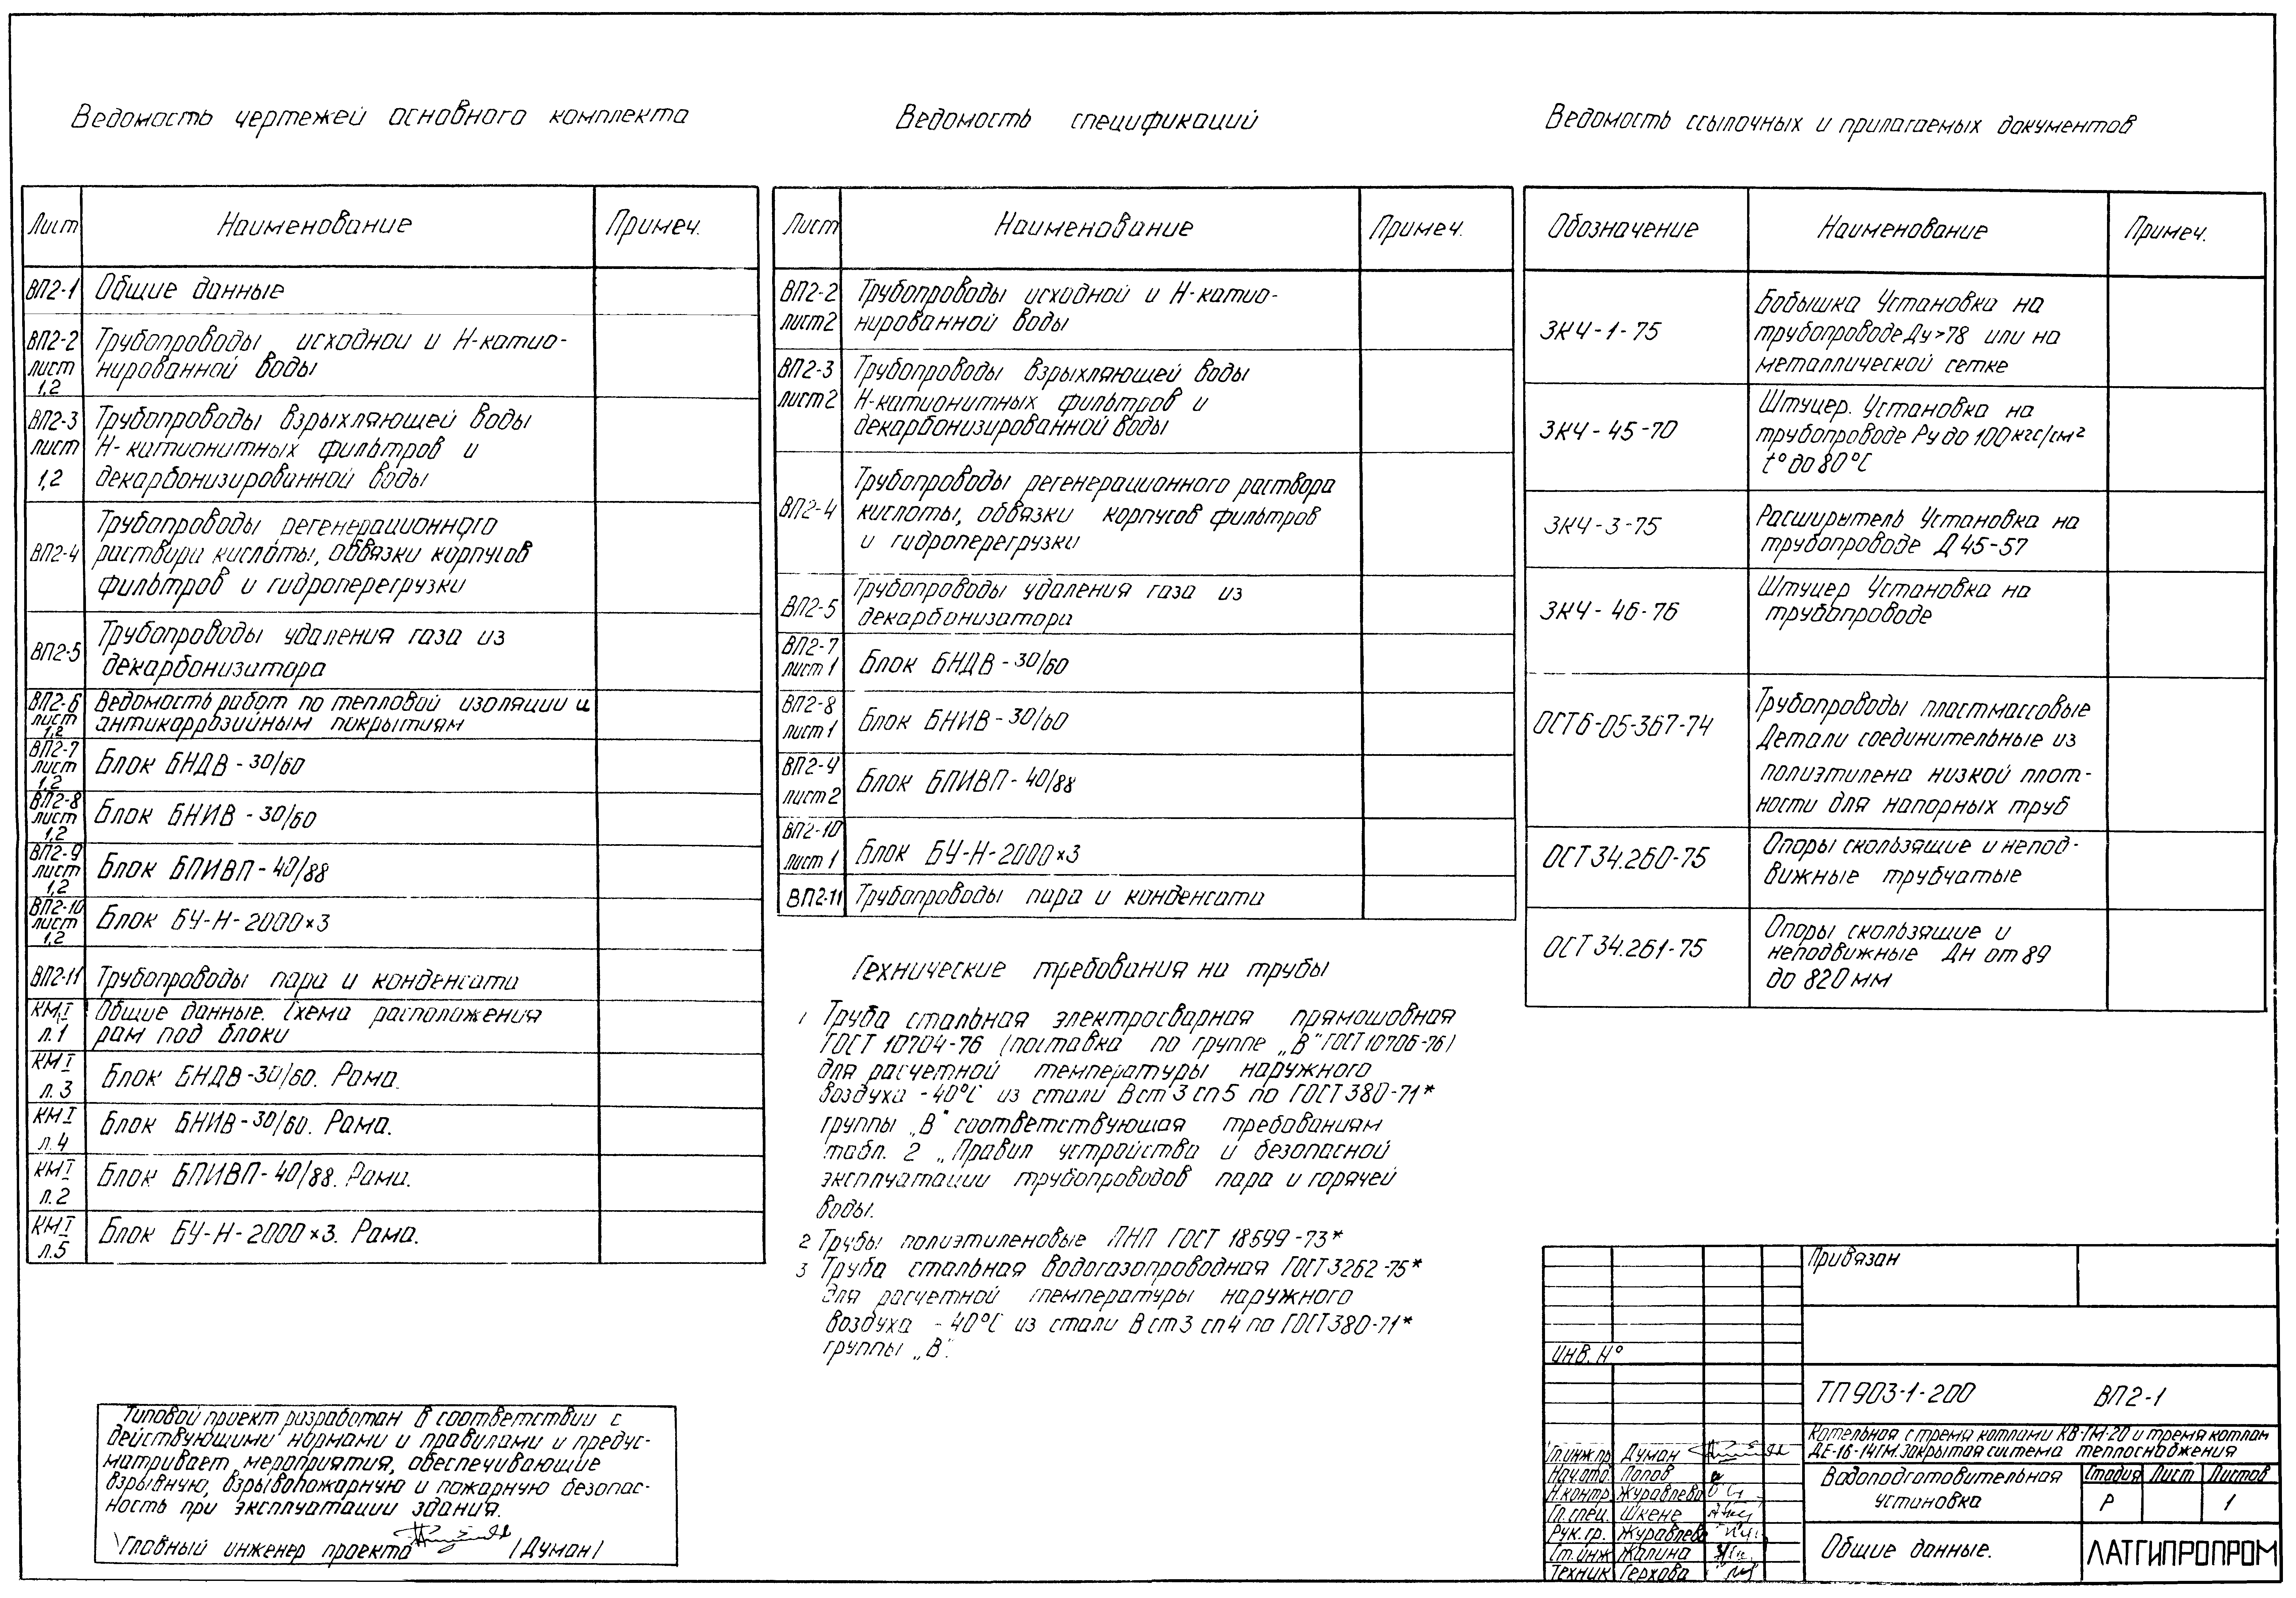 Ведомость чертежей основного комплекта
Лист Наименование Примеч.
ВП2-1 Общие данные
ВП2-2 Трубопроводы исходной и Н-катио-
лист нированной воды
1,2
ВП2-3 Трубопроводы взрыхляющей воды
лист Н-катионитных фильтров и
1,2 декарбонизированной воды
Трубопроводы регенерационного
ВП2-4 раствора кислоты, обвязки корпусов
фильтров и гидроперегрузки
Трубопроводы удаления газа из
ВП2-5
декарбонизатора
ВП2-6 Ведомость работ по тепловой изоляции и
лист антикоррозийным покрытиям
1,2
ВП2-7
лист Блок БНДВ-30/60
1,2
ВП2-8
лист Блок БНИВ-30/60
1,2
ВП2-9
лист Блок БПИВП-40/88
1,2
ВП2-10
лист Блок БУ-Н-2000×3
1,2
ВП2-11 Трубопроводы пара и конденсата
КМI Общие данные. Схема расположения
л.1 рам под блоки
КМI
л.3 Блок БНДВ-30/60. Рама.
КМI
л.4 Блок БНИВ-30/60. Рама.
КМI
л.2 Блок БПИВП-40/88. Рама.
КМI
л.5 Блок БУ-Н-2000×3. Рама.
Типовой проект разработан в соответствии с
действующими нормами и правилами и предус-
матривает мероприятия, обеспечивающие
взрывную, взрывопожарную и пожарную безопас-
ность при эксплуатации здания.
Главный инженер проекта /Думан/
Ведомость спецификаций
Лист Наименование Примеч.
ВП2-2 Трубопроводы исходной и Н-катио-
лист 2 нированной воды
ВП2-3 Трубопроводы взрыхляющей воды
лист 2 Н-катионитных фильтров и
декарбонизированной воды
Трубопроводы регенерационного раствора
ВП2-4 кислоты, обвязки корпусов фильтров
и гидроперегрузки
Трубопроводы удаления газа из
ВП2-5 декарбонизатора
ВП2-7
лист 1 Блок БНДВ-30/60
ВП2-8
лист 1 Блок БНИВ-30/60
ВП2-9
лист 2 Блок БПИВП-40/88
ВП2-10
лист 1 Блок БУ-Н-2000×3
ВП2-11 Трубопроводы пара и конденсата
Технические требования на трубы
1 Труба стальная электросварная прямошовная
ГОСТ 10704-76 (поставка по группе „В" ГОСТ 10706-76)
для расчетной температуры наружного
воздуха -40°С из стали Вст3сп5 по ГОСТ 380-71*
группы „В" соответствующая требованиям
табл. 2 „Правил устройства и безопасной
эксплуатации трубопроводов пара и горячей
воды.
2 Трубы полиэтиленовые ПНП ГОСТ 18599-73*
3 Труба стальная водогазопроводная ГОСТ 3262-75*
для расчетной температуры наружного
воздуха -40°С из стали Вст3сп4 по ГОСТ 380-71*
группы „В".
Ведомость ссылочных и прилагаемых документов
Обозначение Наименование Примеч.
Бобышка Установка на
ЗКЧ-1-75 трубопроводе Ду>78 или на
металлической сетке
Штуцер. Установка на
ЗКЧ-45-70 трубопроводе Ру до 100 кгс/см²
t° до 80°С
ЗКЧ-3-75 Расширытель Установка на
трубопроводе Д 45-57
ЗКЧ-46-76 Штуцер Установка на
трубопроводе
ОСТ6-05-367-74 Трубопроводы пластмассовые
Детали соединительные из
полиэтилена низкой плот-
ности для напорных труб
ОСТ 34.260-75 Опоры скользящие и непод-
вижные трубчатые
ОСТ 34.261-75 Опоры скользящие и
неподвижные Дн от 89
до 820 мм
Привязан
Инв. №
ТП 903-1-200 ВП2-1
Котельная с тремя котлами КВ-ГМ-20 и тремя котлам
ДЕ-16-14ГМ. Закрытая система теплоснабжения
Гл.инж.пр Думан
Нач.отд Попов
Н.контр Журавлева
Гл.спец. Шкене
Рук.гр. Журавлева
Ст.инж Жалина
Техник Герхова
Водоподготовительная
установка
Стадия Лист Листов
Р 1
Общие данные.
ЛАТГИПРОПРОМ